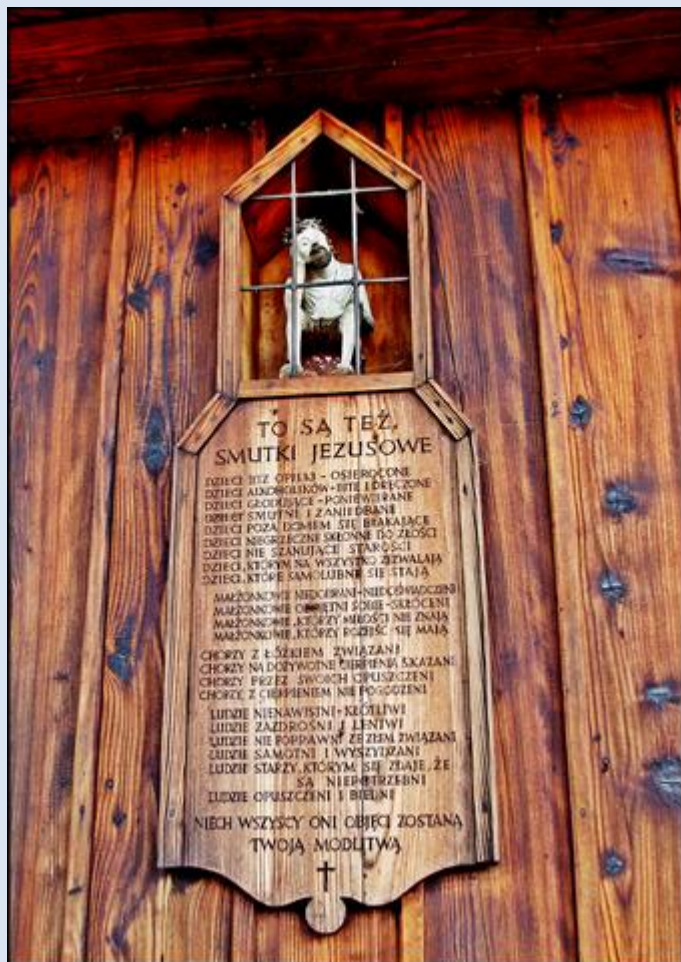 TO SĄ TEŻ,
SMUTKI JEZUSOWE
DZIECI BEZ OPIEKI - OSIEROCONE
DZIECI ALKOHOLIKÓW - BITE I DRĘCZONE
DZIECI GŁODUJĄCE - PONIEWIERANE
DZIECI SMUTNE I ZANIEDBANE
DZIECI POZA DOMEM SIĘ BŁĄKAJĄCE
DZIECI NIEGRZECZNE SKŁONNE DO ZŁOŚCI
DZIECI NIE SZANUJĄCE STAROŚCI
DZIECI, KTÓRYM NA WSZYSTKO ZEZWALAJĄ
DZIECI, KTÓRE SAMOLUBNE SIĘ STAJĄ
MAŁŻONKOWIE NIEDOBRANI - NIEDOŚWIADCZENI
MAŁŻONKOWIE OBOJĘTNI SOBIE - SKŁÓCENI
MAŁŻONKOWIE, KTÓRZY MIŁOŚCI NIE ZNAJĄ
MAŁŻONKOWIE, KTÓRZY ROZEJŚĆ SIĘ MAJĄ
CHORZY Z ŁÓŻKIEM ZWIĄZANI
CHORZY NA DOŻYWOTNE CIERPIENIA SKAZANI
CHORZY PRZEZ SWOICH OPUSZCZENI
CHORZY, Z CIERPIENIEM NIE POGODZENI
LUDZIE NIENAWISTNI - KŁÓTLIWI
LUDZIE ZAZDROŚNI I LENIWI
LUDZIE NIEPOPRAWNI ZE ZŁEM ZWIĄZANI
LUDZIE SAMOTNI I WYSZYDZANI
LUDZIE STARZY, KTÓRYM SIĘ ZDAJE, ŻE
SĄ NIEPOTRZEBNI
LUDZIE OPUSZCZENI I BIEDNI
NIECH WSZYSCY ONI OBJĘCI ZOSTANĄ
TWOJĄ MODLITWĄ